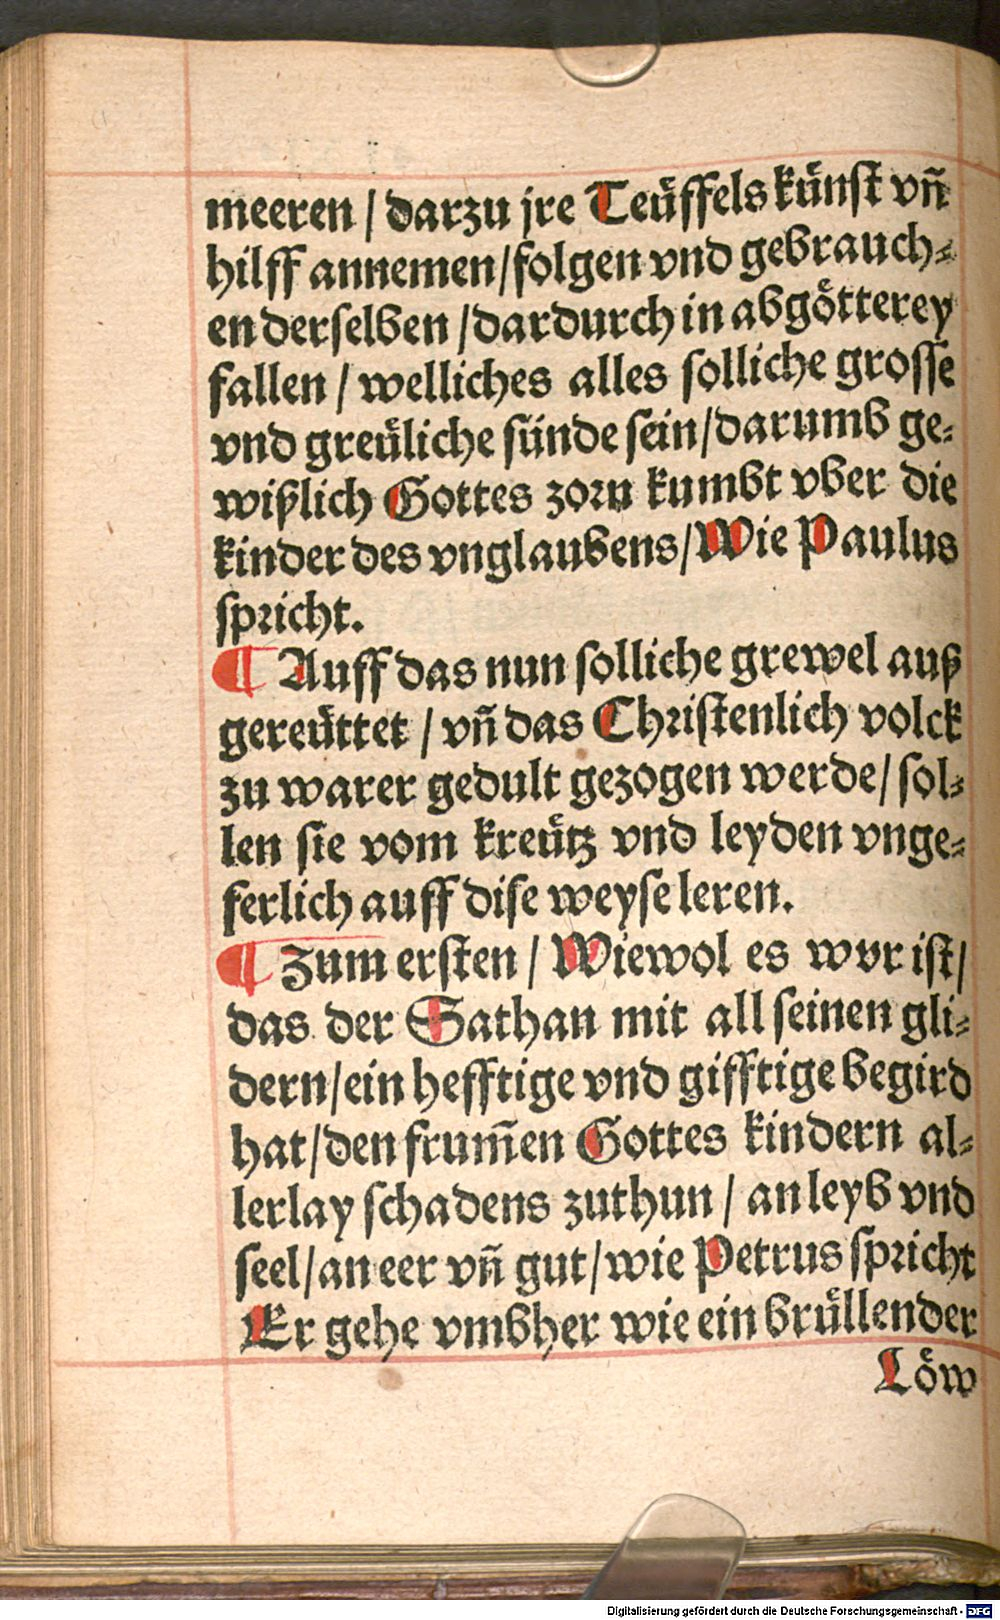 meeren / darzu jre Teüffels künst vñ
hilff annemen / folgen vnd gebrauch⸗
en derselben / dardurch in abgötterey
fallen / welliches alles solliche grosse
vnd greüliche sünde sein / darumb ge⸗
wißlich Gottes zorn kumbt vber die
kinder des vnglaubens / Wie Paulus
spricht.
¶ Auff das nun solliche grewel auß
gereüttet / vñ das Christenlich volck
zu warer gedult gezogen werde / sol⸗
len sie vom kreütz vnd leyden vnge⸗
ferlich auff dise weyse leren.
¶ Zum ersten / Wiewol es wvr ist /
das der Sathan mit all seinen gli⸗
dern / ein hefftige vnd gifftige begird
hat / den frum̄en Gottes kindern al⸗
lerlay schadens zuthun / an leyb vnd
seel / an eer vñ gut / wie Petrus spricht
Er gehe vmbher wie ein brüllender
Löw
Digitalisierung gefördert durch die Deutsche Forschungsgemeinschaft - DFG